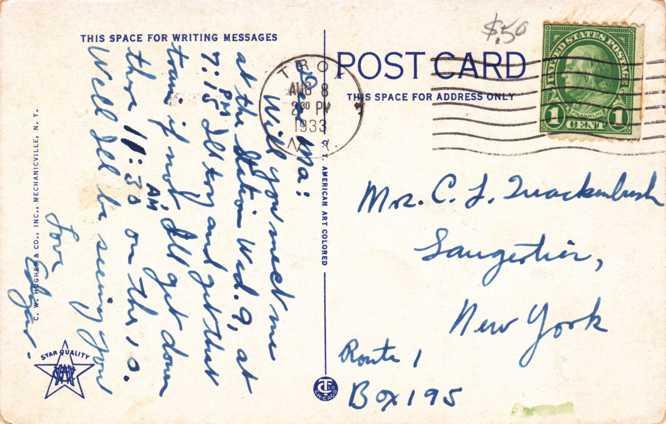 $.50
THIS SPACE FOR WRITING MESSAGES
POST CARD
THIS SPACE FOR ADDRESS ONLY
UNITED STATES POSTAGE
1 CENT 1
TROY
AUG 8
2 30 PM
1933
N.Y.
Dear Ma:
Will you meet me
at the Station Wed. 9, at
7:15 PM I'll try and get that
train if not, I'll get down
there 11:30 AM on the 10.
Well I'll be seeing you
Love
Edgar.
Mrs. C. L. Quackenbush
Saugerties,
New York
Route 1
Box 195
C. W. HUGHES & CO., INC., MECHANICVILLE, N. Y.
AMERICAN ART COLORED
STAR QUALITY